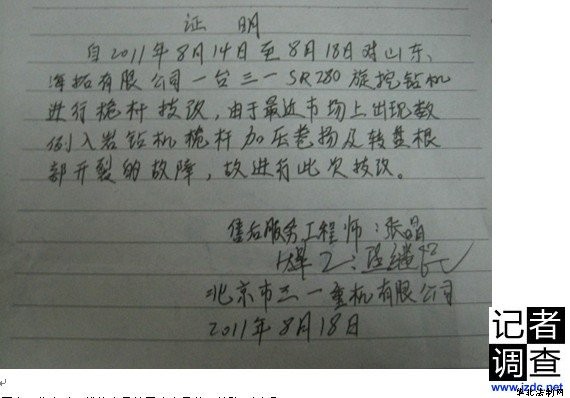 证明
自2011年8月14日至8月18日对山东
海拓有限公司一台三一SR280旋挖钻机
进行桅杆技改,由于最近市场上出现数
例入岩钻机桅杆加压卷扬及转盘根
部开裂的故障,故进行此次技改。
售后服务工程师:张晶
焊工:
北京市三一重机有限公司
2011年8月18日
记者
调查
www.jzdc.net
华北法制网